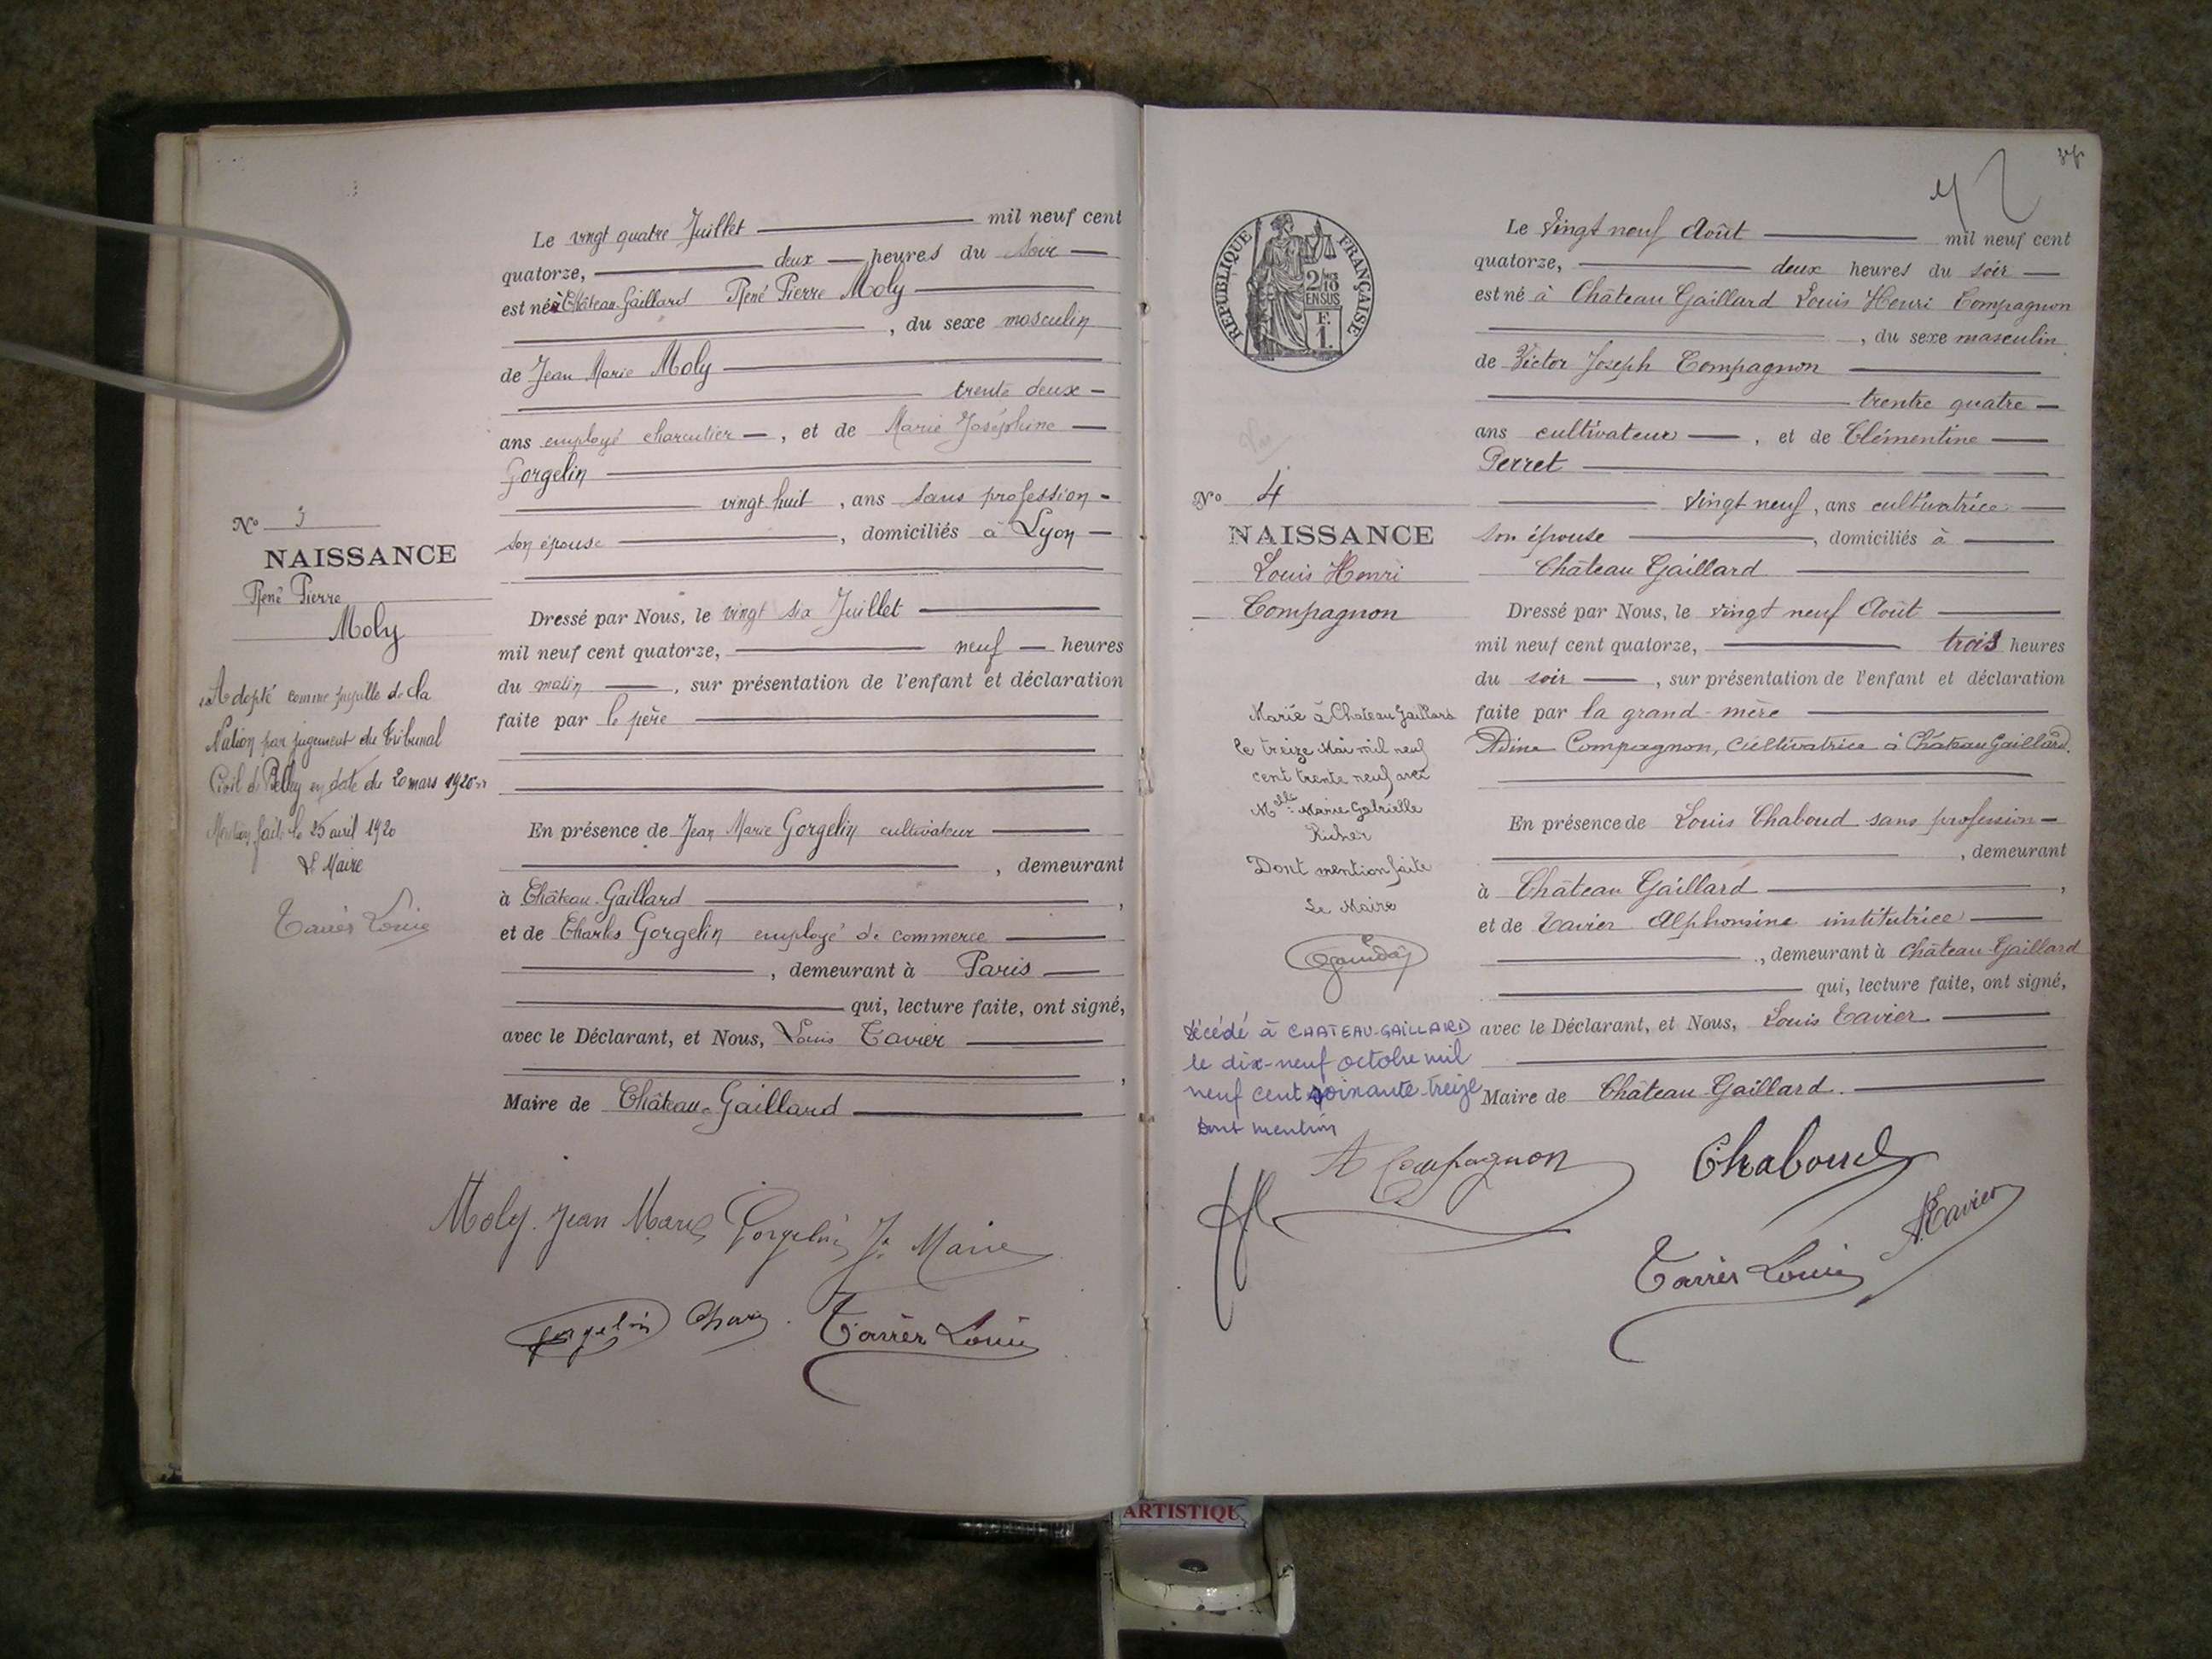 Le vingt quatre Juillet mil neuf cent
quatorze, deux heures du soir
est né à Château-Gaillard René Pierre Moly
, du sexe masculin
de Jean Marie Moly
trente deux
ans employé charcutier, et de Marie Joséphine
Gorgelin
vingt huit, ans sans profession
son épouse, domiciliés à Lyon
Dressé par Nous, le vingt six Juillet
mil neuf cent quatorze, neuf heures
du matin, sur présentation de l'enfant et déclaration
faite par le père
En présence de Jean Marie Gorgelin cultivateur
, demeurant
à Château-Gaillard,
et de Charles Gorgelin employé de commerce
, demeurant à Paris
qui, lecture faite, ont signé,
avec le Déclarant, et Nous, Louis Tavier
,
Maire de Château-Gaillard
No 3
NAISSANCE
René Pierre
Moly
Adopté comme pupille de la
Nation par jugement du Tribunal
Civil de Belley en date du 20 mars 1920
Mention faite le 25 avril 1920
Le Maire
Tavier Louis
Moly Jean Marie Gorgelin J. Marie
Gorgelin Tavier Louis
REPUBLIQUE FRANÇAISE
2/10
EN SUS
F.
1.
Le vingt neuf Août mil neuf cent
quatorze, deux heures du soir
est né à Château Gaillard Louis Henri Compagnon
, du sexe masculin
de Victor Joseph Compagnon
trentre quatre
ans cultivateur, et de Clémentine
Perret
vingt neuf, ans cultivatrice
son épouse, domiciliés à
Château Gaillard
Dressé par Nous, le vingt neuf Août
mil neuf cent quatorze, trois heures
du soir, sur présentation de l'enfant et déclaration
faite par la grand-mère
Adine Compagnon, cultivatrice à Château Gaillard.
En présence de Louis Chaboud sans profession
, demeurant
à Château Gaillard,
et de Tavier Alphonsine institutrice
, demeurant à Château-Gaillard
qui, lecture faite, ont signé,
avec le Déclarant, et Nous, Louis Tavier
Maire de Château-Gaillard.
No 4
NAISSANCE
Louis Henri
Compagnon
Marié à Chateau Gaillard
le treize Mai mil neuf
cent trente neuf avec
Melle Marie Gabrielle
Richer
Dont mention faite
Le Maire
Décédé à CHATEAU-GAILLARD
le dix-neuf octobre mil
neuf cent soixante-treize
Dont mention
A Compagnon Chaboud
A. Tavier
Tavier Louis
ARTISTIQU